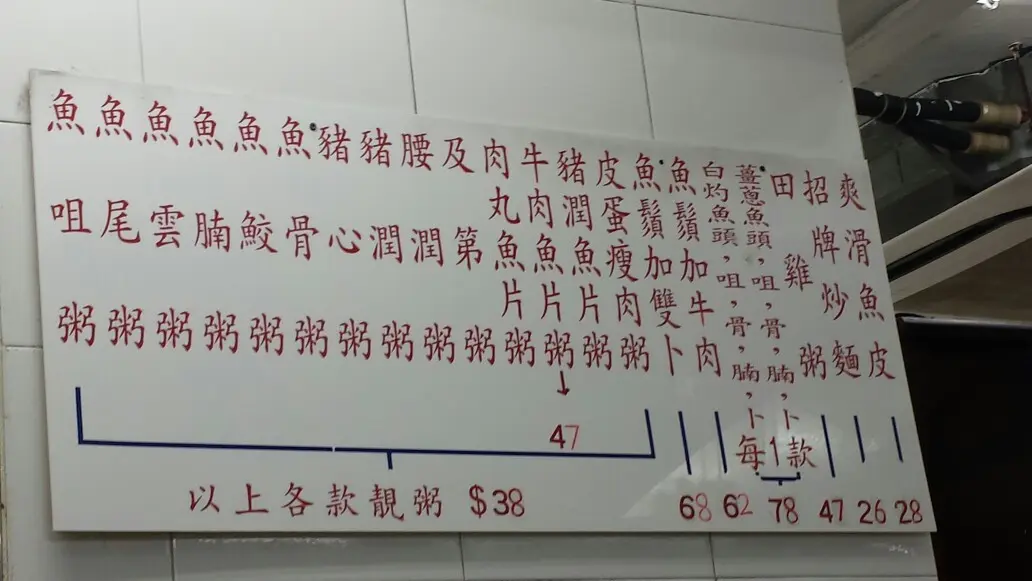 爽滑魚皮
招牌炒麵
田雞粥
薑蔥魚頭，咀，骨，腩，卜
白灼魚頭，咀，骨，腩，卜
魚鬚加牛肉
魚鬚加雙卜
皮蛋瘦肉粥
豬潤魚片粥
牛肉魚片粥
肉丸魚片粥
及第粥
腰潤粥
豬潤粥
豬心粥
魚骨粥
魚鮫粥
魚腩粥
魚雲粥
魚尾粥
魚咀粥
47
每1款
以上各款靚粥 $38
68 62 78 47 26 28